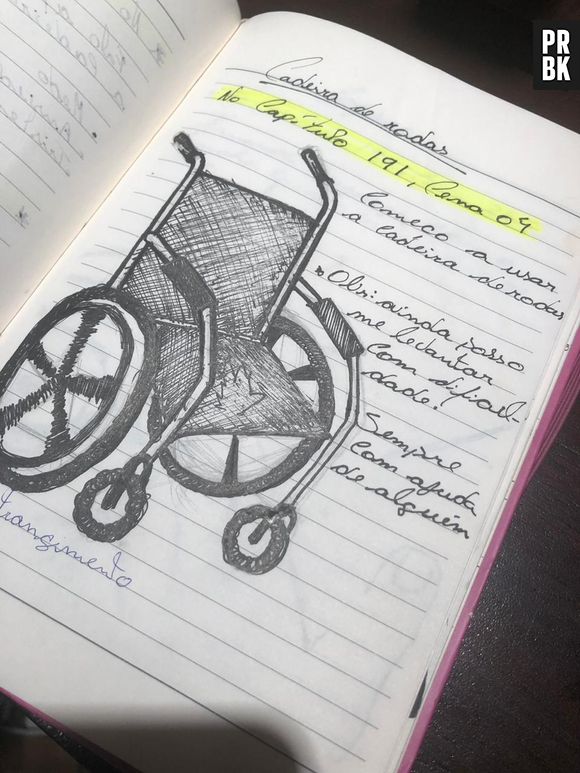 PR
BK
Cadeira de rodas
No Capítulo 191, Cena 04
Começo a usar
a cadeira de rodas
Obs: ainda posso
me levantar
com dificul-
dade.
Sempre
com ajuda
de alguém